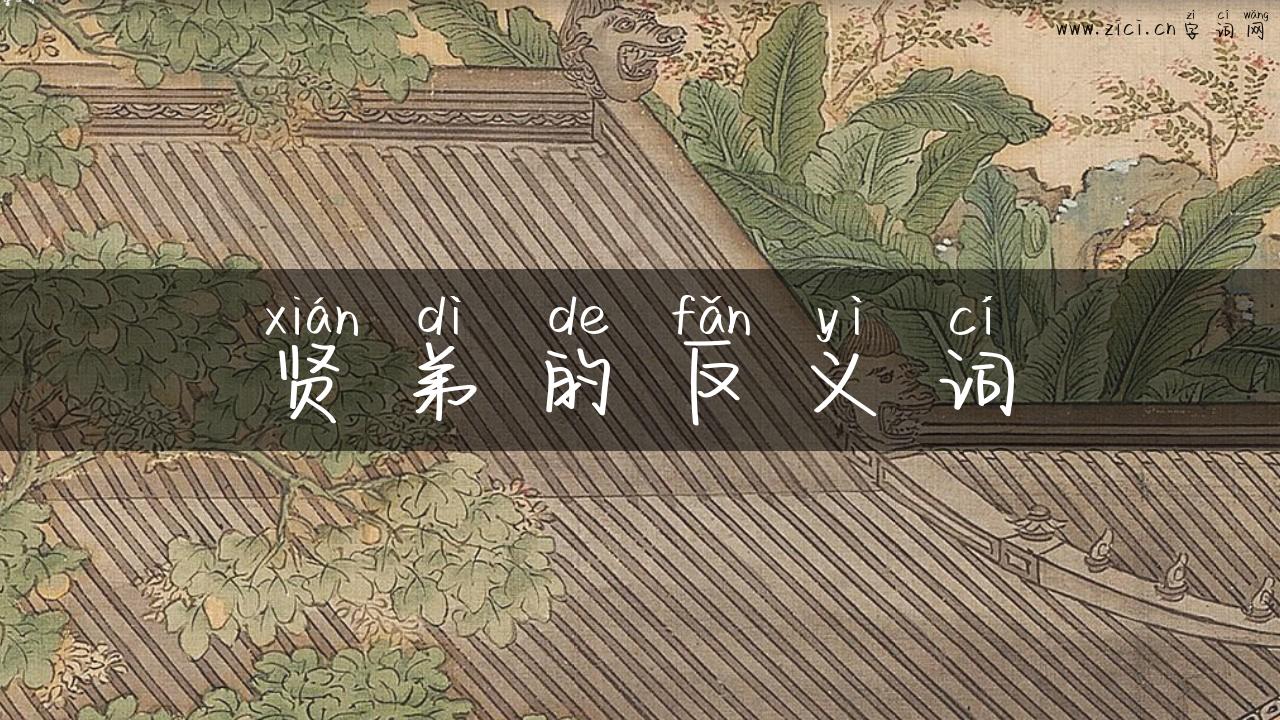 zì cí wǎng
www.zici.cn 字词网
xián dì de fǎn yì cí
贤弟的反义词